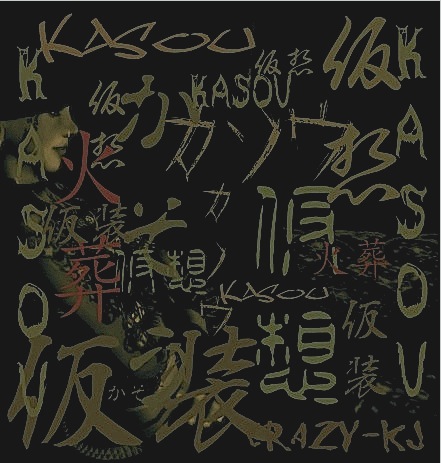 KASOU
KASOU
KASOU
仮想
KASOU
仮想
仮想
カソウ
火葬
カソウ
仮装
仮想
仮想
火葬
KASOU
仮装
仮装
かそ
CRAZY-KJ